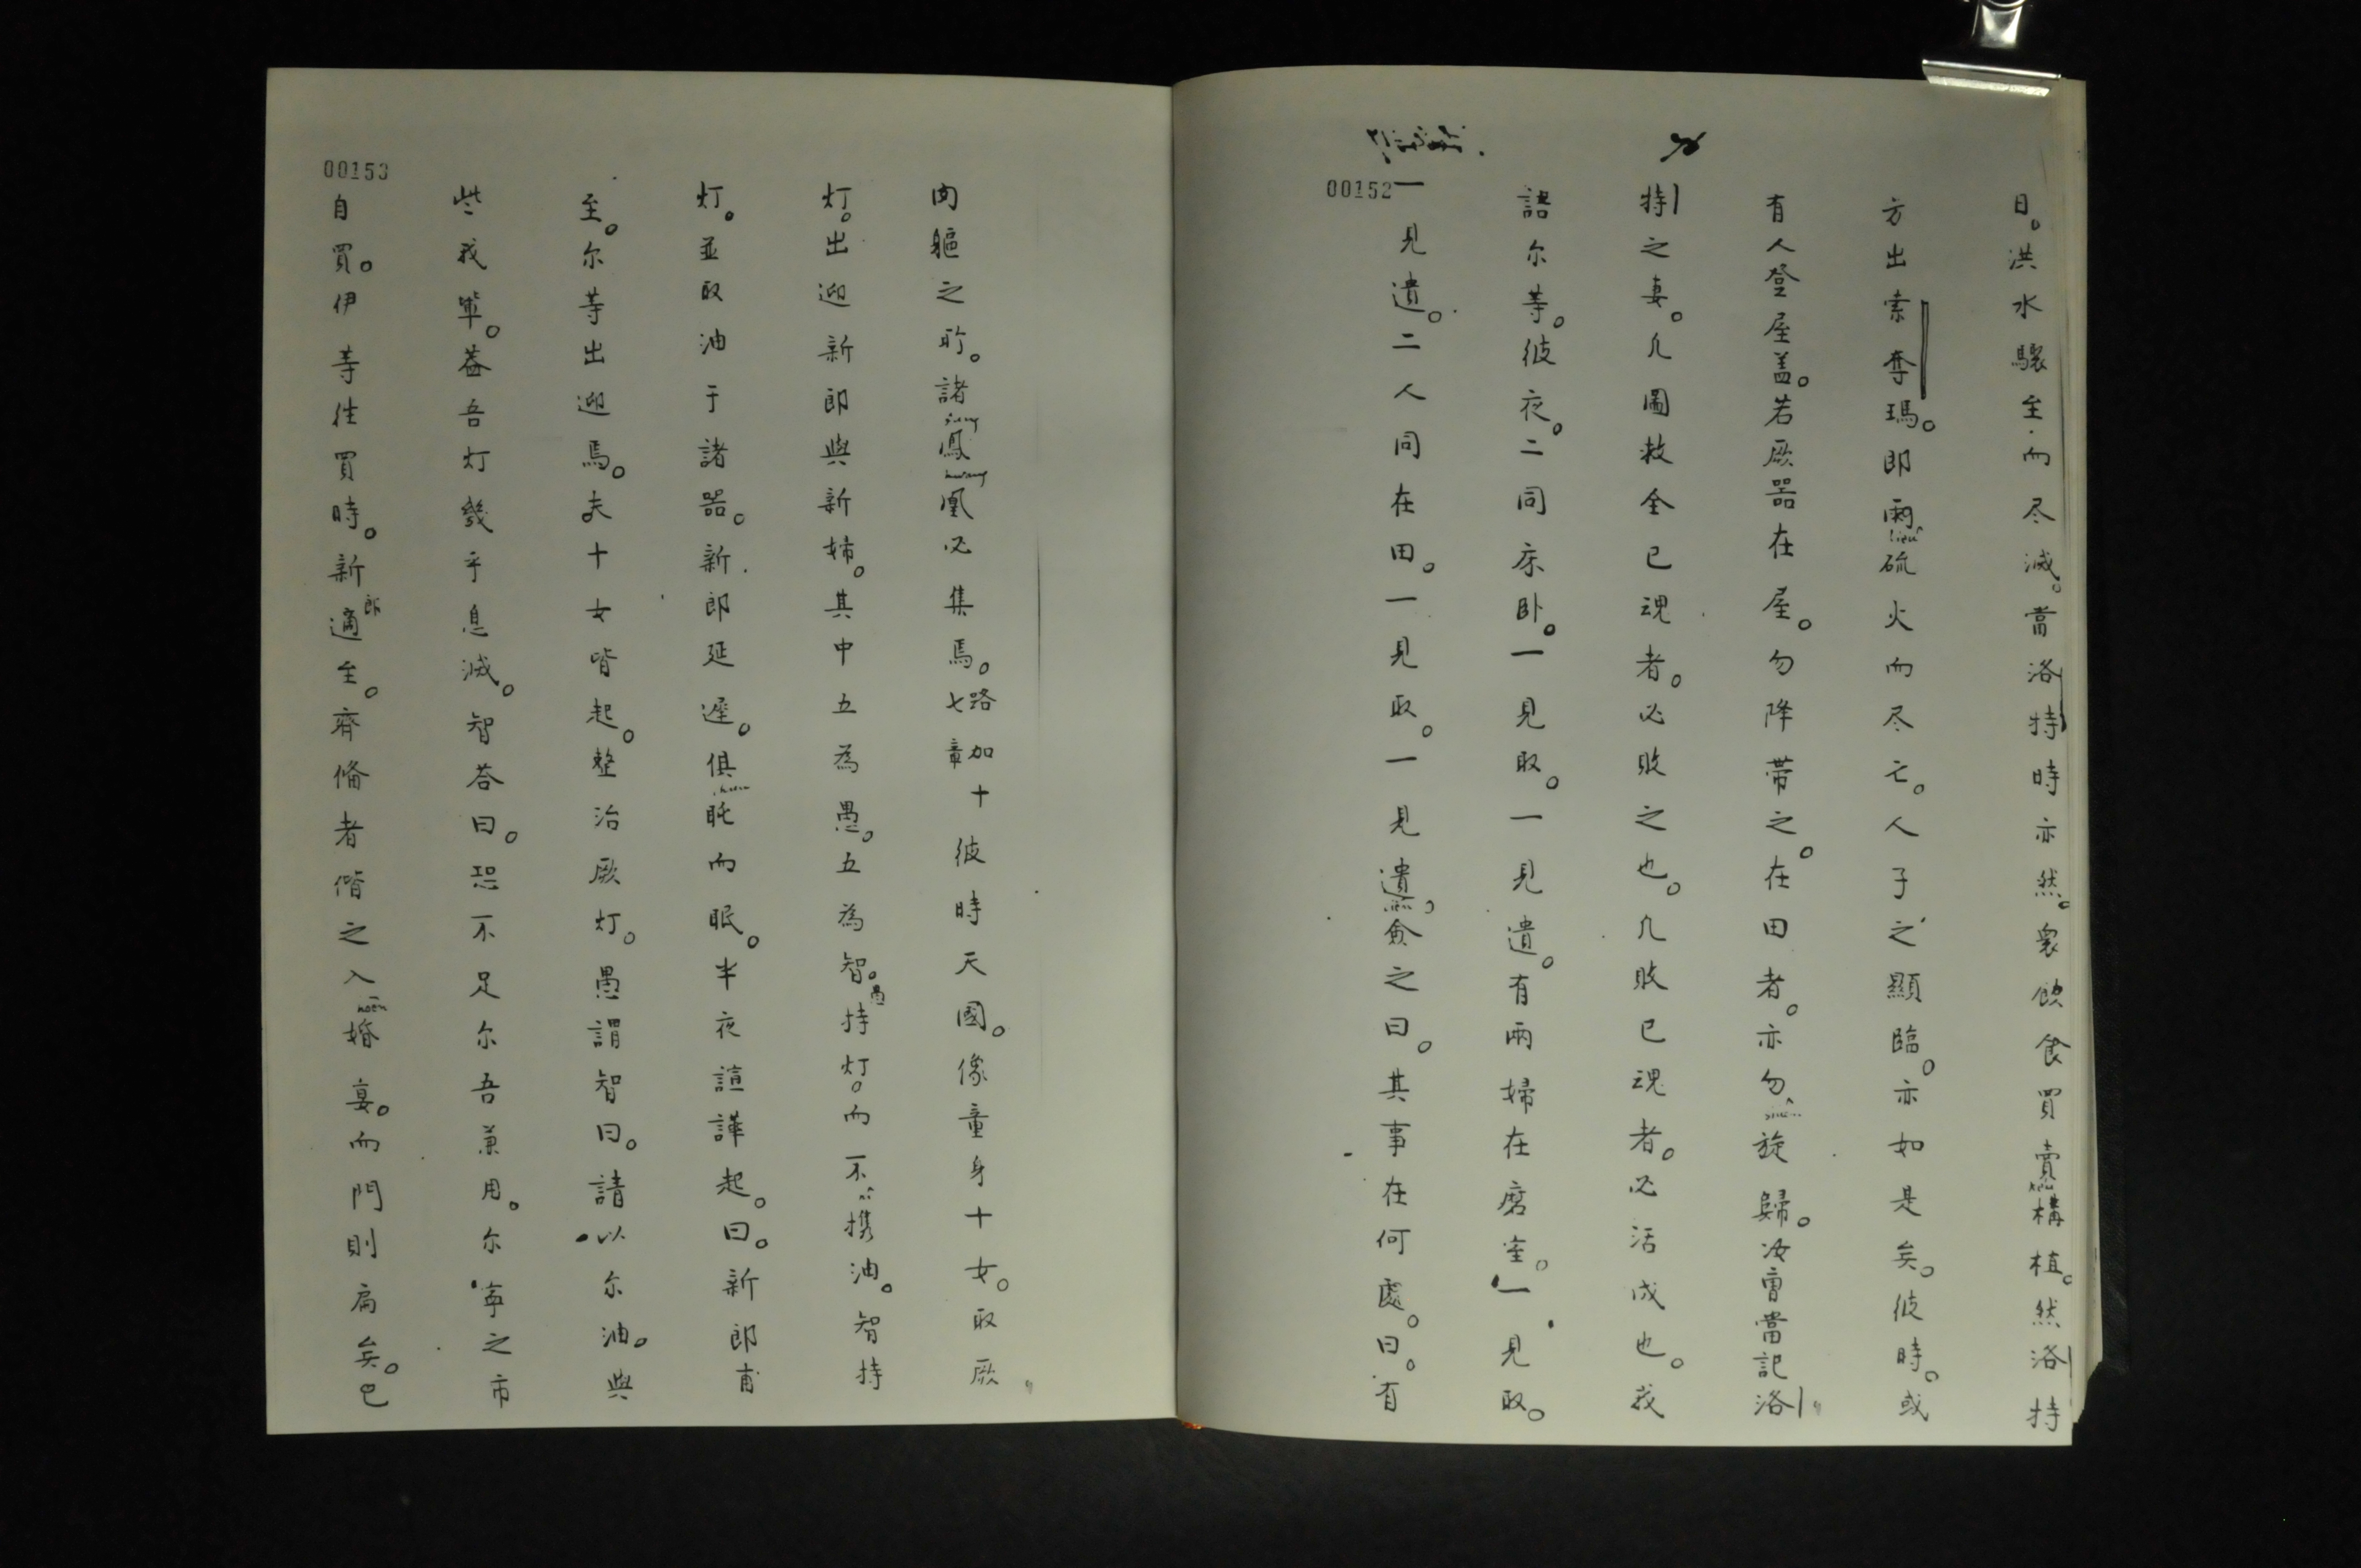 00152
日。洪水驟至而尽滅。當洛特時亦然。衆飲食買賣構植。然洛特
方出索奪瑪。即雨硫火而尽亡。人子之顯臨。亦如是矣。彼時。或
有人登屋盖。若厥器在屋。勿降帶之。在田者。亦勿旋歸。汝曹當記洛
特之妻。凡圖救全已魂者。必敗之也。凡敗已魂者。必活成也。我
語尔等。彼夜。二同床卧。一見取。一見遺。有兩婦在磨室。一見取。
一見遺。二人同在田。一見取。一見遺。僉之曰。其事在何處。曰。有
00153
肉軀之所。諸鳳凰必集焉。路加十七章 彼時天國。像童身十女。取厥
灯。出迎新郎與新婦。其中五為愚。五為智。愚持灯。而不携油。智持
灯。並取油于諸器。新郎延遲。俱眊而眠。半夜諠譁起。曰。新郎甫
至。尔等出迎焉。夫十女皆起。整治厥灯。愚謂智曰。請以尔油。與
些我輩。蓋吾灯幾乎息滅。智荅曰。恐不足尔吾兼用。尔寧之市
自買。伊等往買時。新郎適至。齊俻者偕之入婚宴。而門則扃矣。已